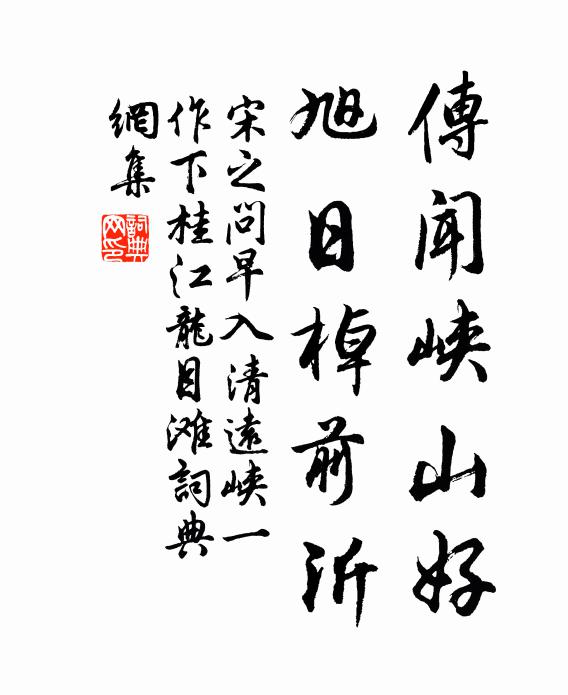 傳聞峽山好
旭日棹前沂
宋之問早入清遠峽一
作下桂江龍目滩詞典
網集
詞典
网印